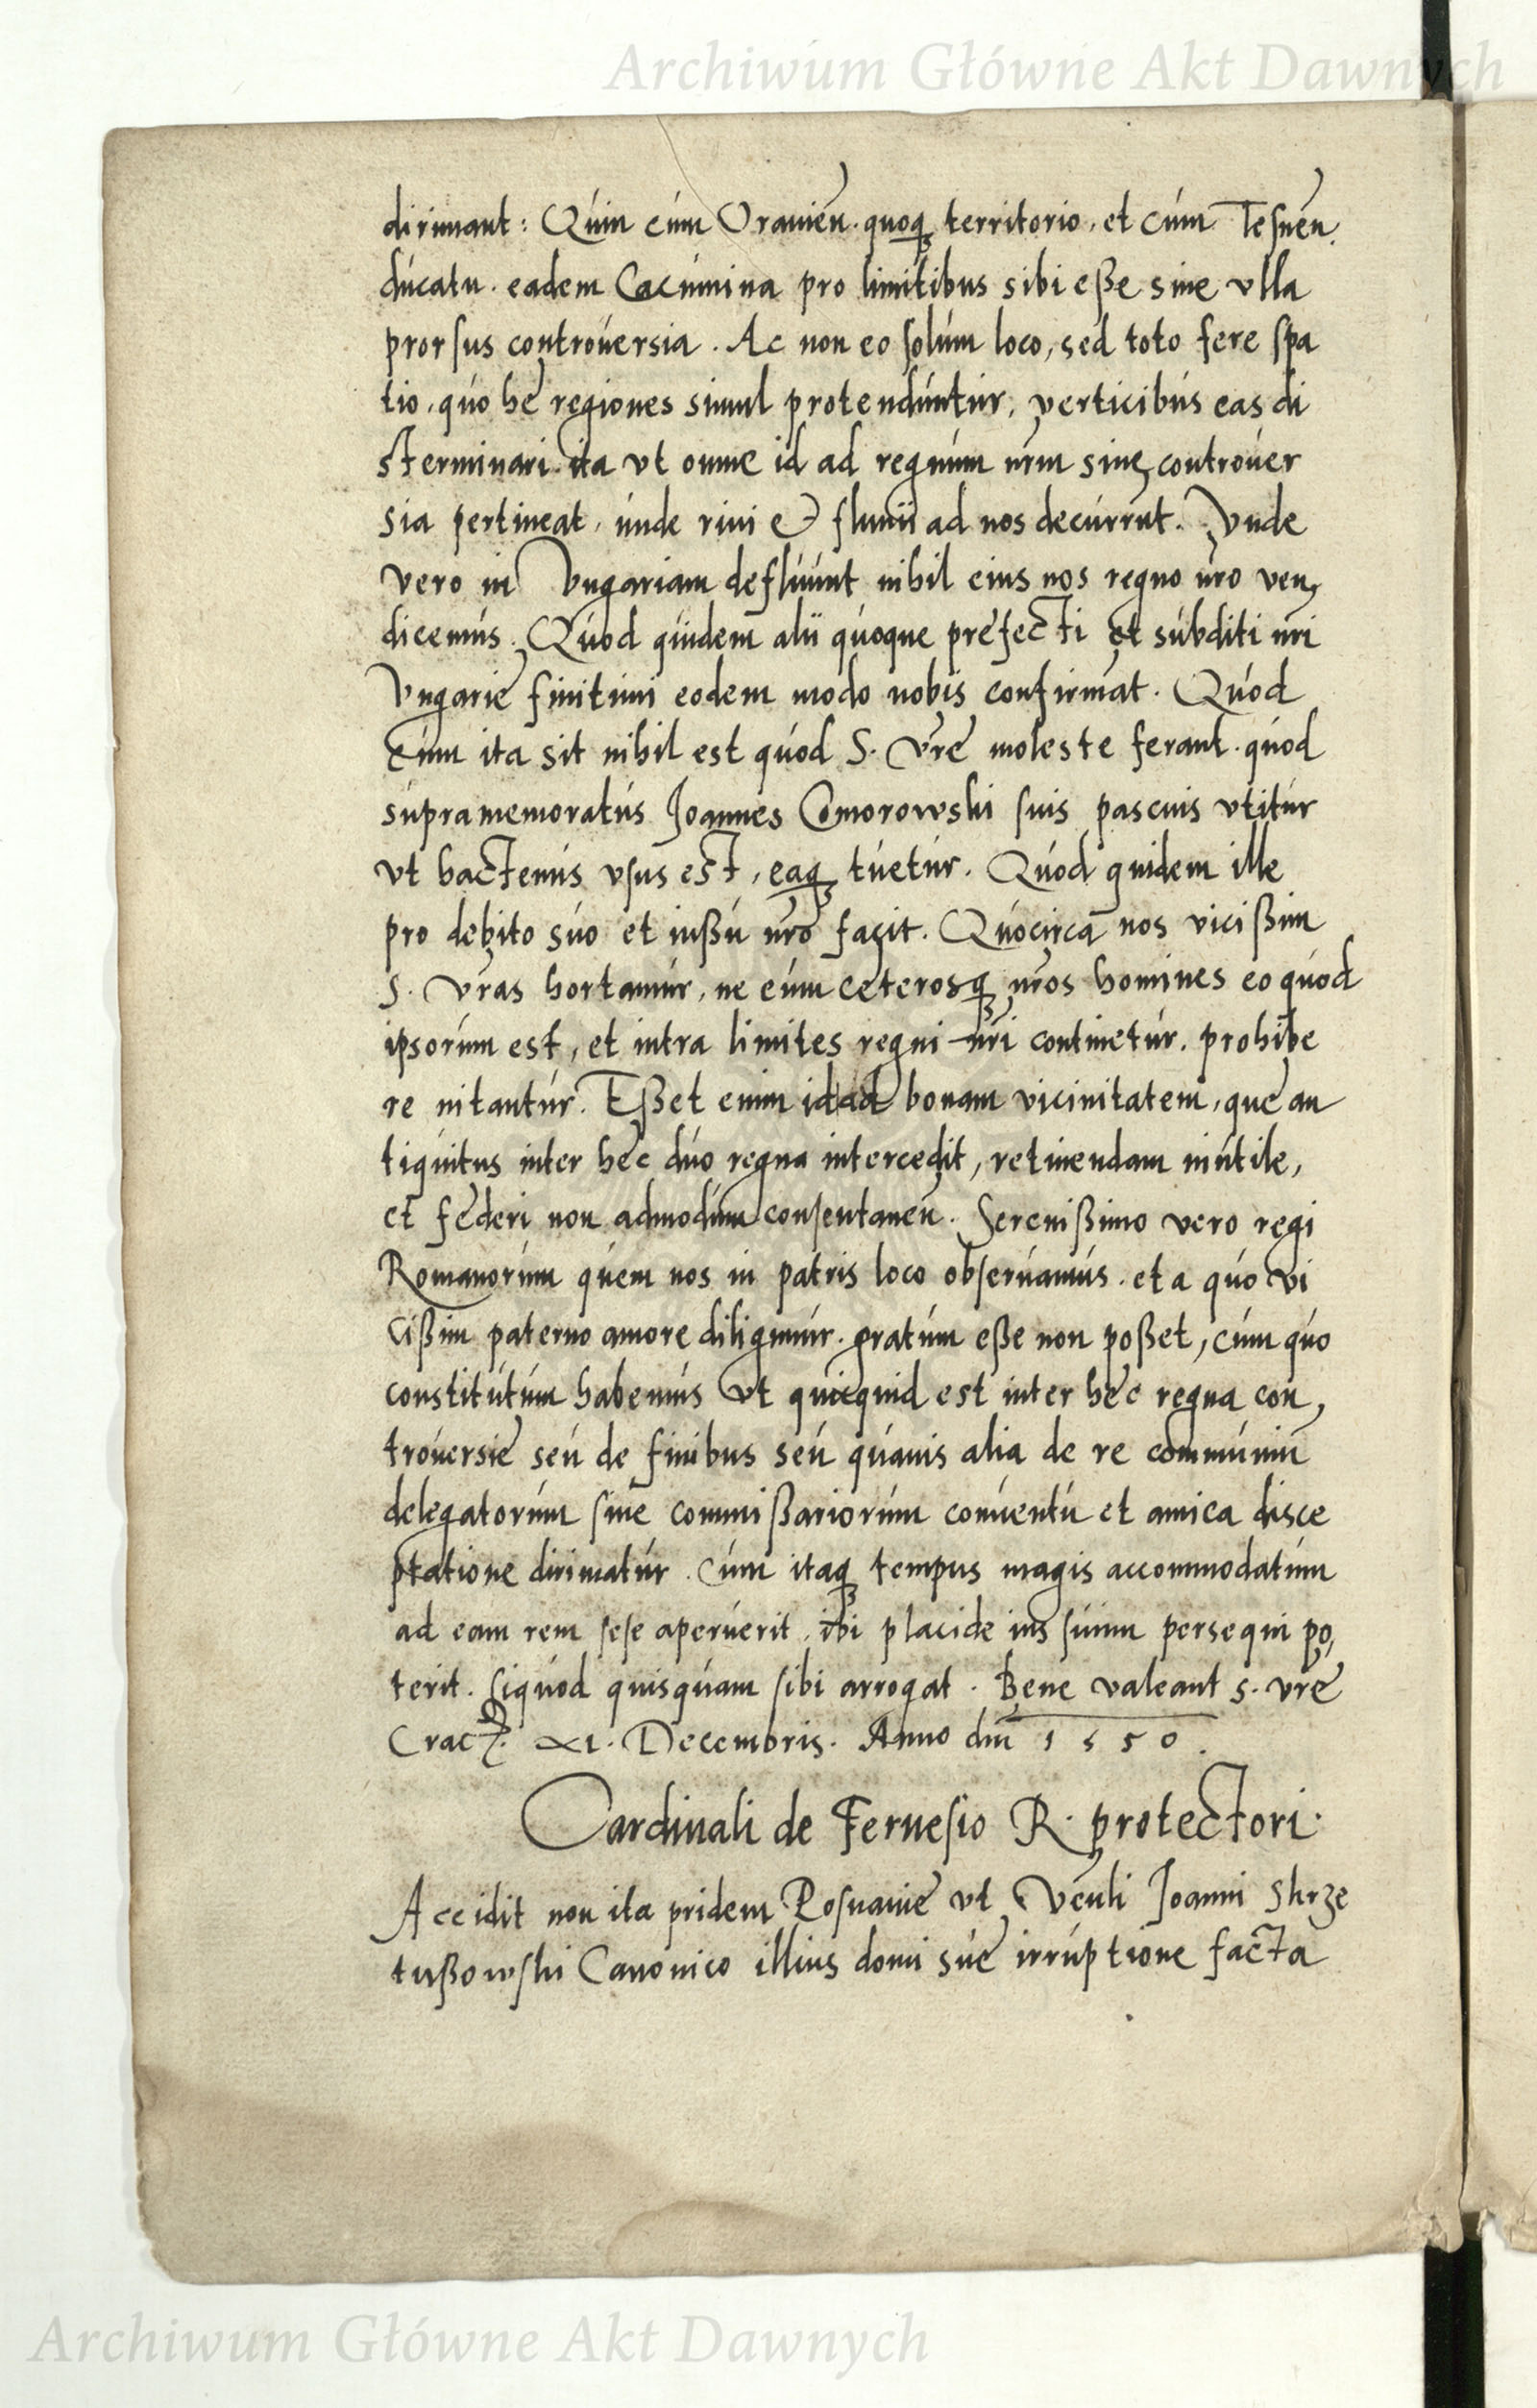 Archiwum Główne Akt Dawnych
dirimant: Quin cum Orauien̄. quoq₃ territorio, et cum Tesnen̄.
ducatu. eadem Cacumina pro limitibus sibi eße sine vlla
prorsus controuersia. Ac non eo solum loco, sed toto fere spa
tio, quo hę regiones simul protenduntur, verticibus eas di
sterminari. ita vt omne id ad regnum nr̄m sine controuer
sia pertineat, unde riui et fluuii ad nos decurrūt. Vnde
vero in Vngariam defluunt nihil eius nos regno nr̄o ven,
dicemus. Quod quidem alii quoque pręfecti et subditi nr̄i
Vngarię finitimi eodem modo nobis confirmāt. Quod
cum ita sit nihil est quod S. Vr̄ę moleste ferant. quod
supramemoratus Joannes Comorowski suis pascuis vtitur
vt hactenus vsus est, eaq₃ tuetur. Quod quidem ille
pro debito suo et iußu nr̄o facit. Quocirca nos vicißim
S. Vr̄as hortamur, ne eum ceterosq₃ nr̄os homines eo quod
ipsorum est, et intra limites regni nr̄i continetur. prohibe
re nitantur. Eßet enim id ad bonam vicinitatem, quę an
tiquitus inter hęc duo regna intercedit, retinendam inutile,
et fęderi non admodum consentaneū. Serenißimo vero regi
Romanorum quem nos in patris loco obseruamus. et a quo vi
cißim paterno amore diligimur. gratum eße non poßet, cum quo
constitutum habemus vt quicquid est inter hęc regna con,
trouersię seu de finibus seu quauis alia de re communiū
delegatorum siue commißariorum conuentu et amica disce
ptatione dirimatur. Cum itaq₃ tempus magis accommodatum
ad eam rem sese aperuerit, ibi placide ius suum persequi po,
terit. siquod quisquam sibi arrogat. Bene valeant S. vr̄ę
Crac. XI. Decembris. Anno dn̄i 1550.
Cardinali de Fernesio R. protectori.
Accidit non ita pridem Posnanię vt Ven̄li Joanni Skrze
tußowski Canonico illius domi suę irruptione facta
Archiwum Główne Akt Dawnych